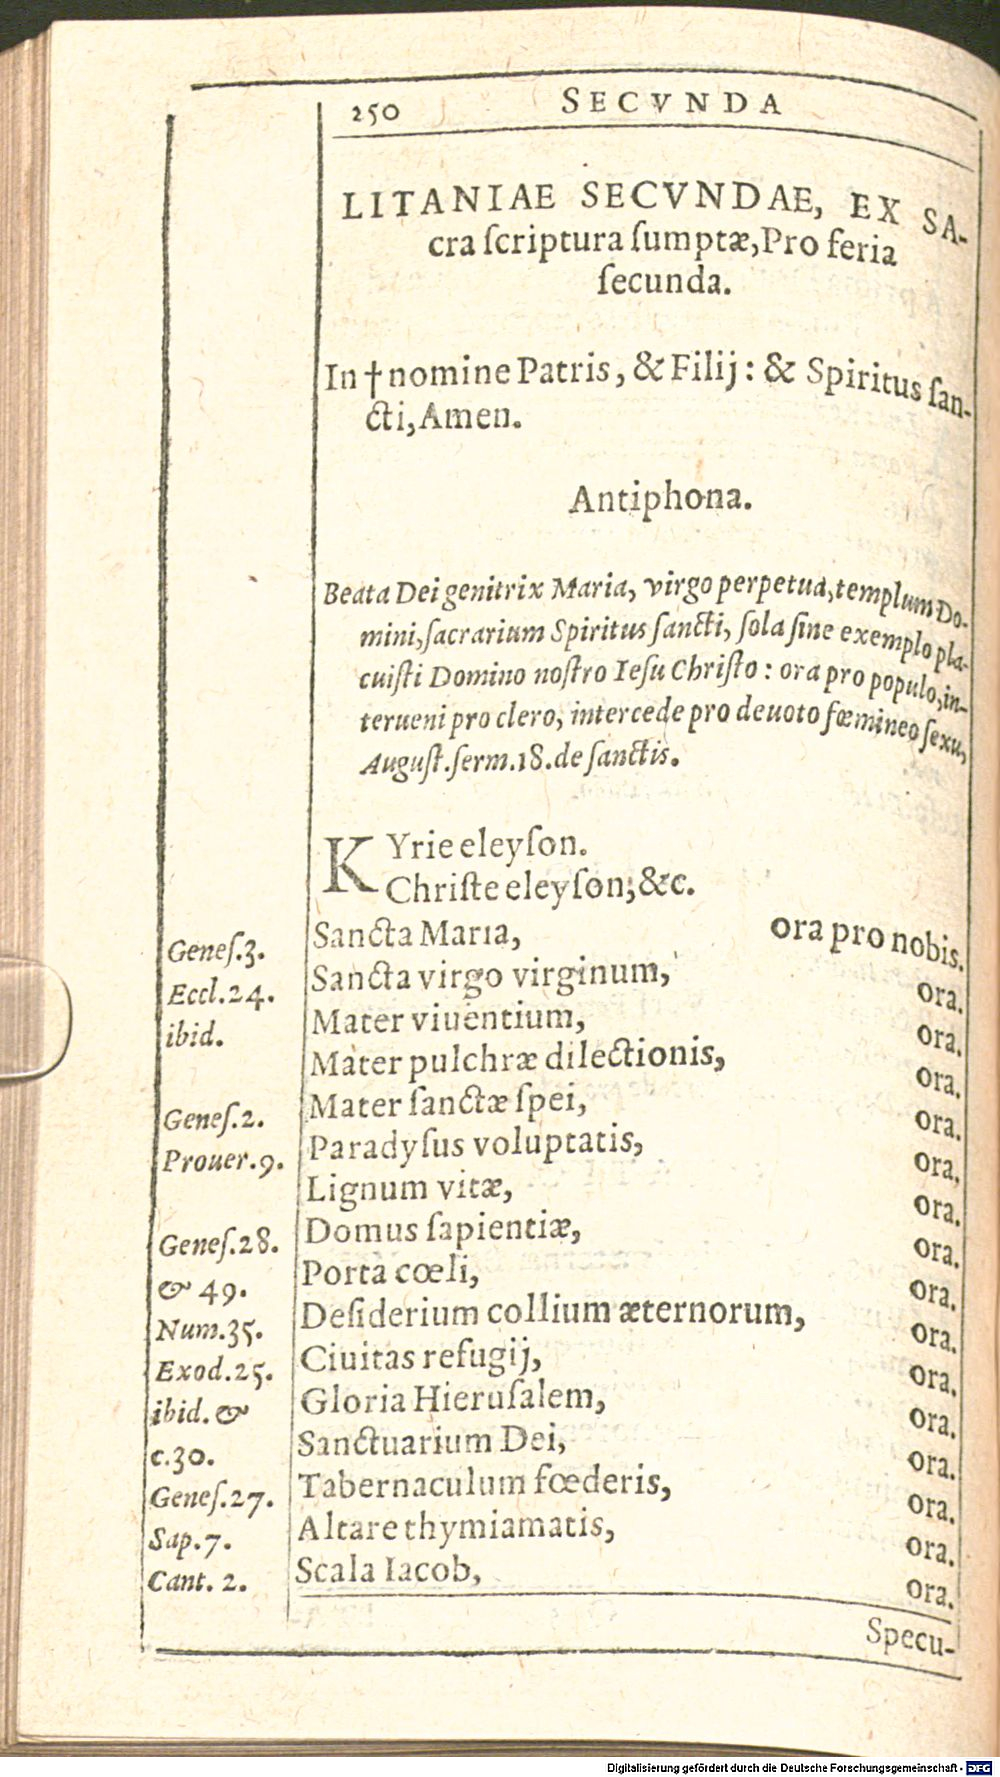 250 SECVNDA
LITANIAE SECVNDAE, EX SA-
cra ſcriptura ſumptæ, Pro feria
ſecunda.
In † nomine Patris, & Filij: & Spiritus ſan-
cti, Amen.
Antiphona.
Beata Dei genitrix Maria, virgo perpetua, templum Do-
mini, ſacrarium Spiritus ſancti, ſola ſine exemplo pla-
cuiſti Domino noſtro Ieſu Chriſto: ora pro populo, in-
terueni pro clero, intercede pro deuoto fœmineo ſexu,
Auguſt. ſerm. 18. de ſanctis.
KYrie eleyſon.
Chriſte eleyſon; &c.
Sancta Maria, ora pro nobis.
Geneſ. 3. Sancta virgo virginum, ora.
Eccl. 24. Mater viuentium, ora.
ibid. Mater pulchræ dilectionis, ora.
Mater ſanctæ ſpei, ora.
Geneſ. 2. Paradyſus voluptatis, ora.
Prouer. 9. Lignum vitæ, ora.
Domus ſapientiæ, ora.
Geneſ. 28. Porta cœli, ora.
& 49. Deſiderium collium æternorum, ora.
Num. 35. Ciuitas refugij, ora.
Exod. 25. Gloria Hieruſalem, ora.
ibid. & Sanctuarium Dei, ora.
c. 30. Tabernaculum fœderis, ora.
Geneſ. 27. Altare thymiamatis, ora.
Sap. 7. Scala Iacob, ora.
Cant. 2.
Specu-
Digitalisierung gefördert durch die Deutsche Forschungsgemeinschaft - DFG